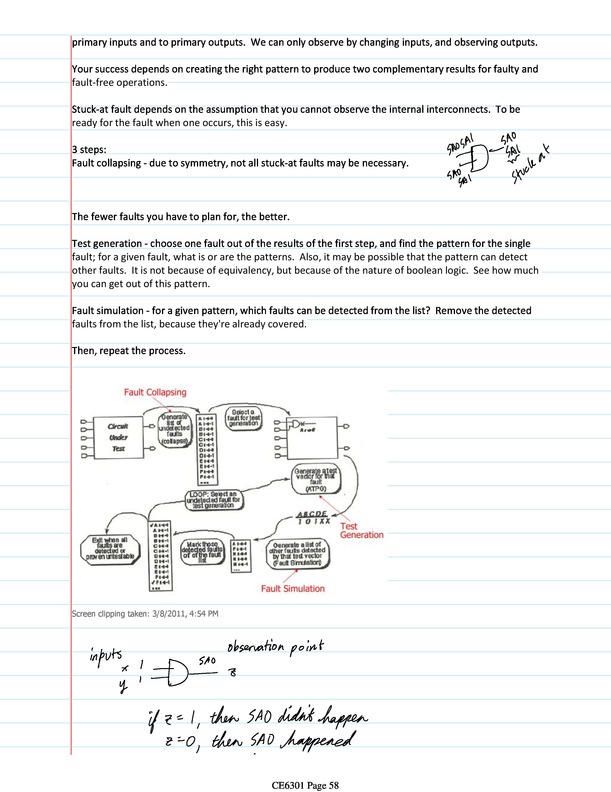 primary inputs and to primary outputs. We can only observe by changing inputs, and observing outputs.
Your success depends on creating the right pattern to produce two complementary results for faulty and
fault-free operations.
Stuck-at fault depends on the assumption that you cannot observe the internal interconnects. To be
ready for the fault when one occurs, this is easy.
3 steps:
Fault collapsing - due to symmetry, not all stuck-at faults may be necessary.
SA0 SA1
SA0
SA1
SA0
SA1
Stuck at
The fewer faults you have to plan for, the better.
Test generation - choose one fault out of the results of the first step, and find the pattern for the single
fault; for a given fault, what is or are the patterns. Also, it may be possible that the pattern can detect
other faults. It is not because of equivalency, but because of the nature of boolean logic. See how much
you can get out of this pattern.
Fault simulation - for a given pattern, which faults can be detected from the list? Remove the detected
faults from the list, because they're already covered.
Then, repeat the process.
Fault Collapsing
Circuit
Under
Test
Generate
list of
undetected
faults
(collapse)
Select a
fault for test
generation
Generate a test
vector for that
fault
(ATPG)
LOOP: Select an
undetected fault for
test generation
A B C D E
1 0 1 X X
Test
Generation
Exit when all
faults are
detected or
proven untestable
Mark those
detected faults
of of the fault
list
Generate a list of
other faults detected
by that test vector
(Fault Simulation)
Fault Simulation
Screen clipping taken: 3/8/2011, 4:54 PM
inputs
observation point
x 1
y 1
SA0
z
if z = 1, then SA0 didn't happen
z = 0, then SA0 happened
CE6301 Page 58